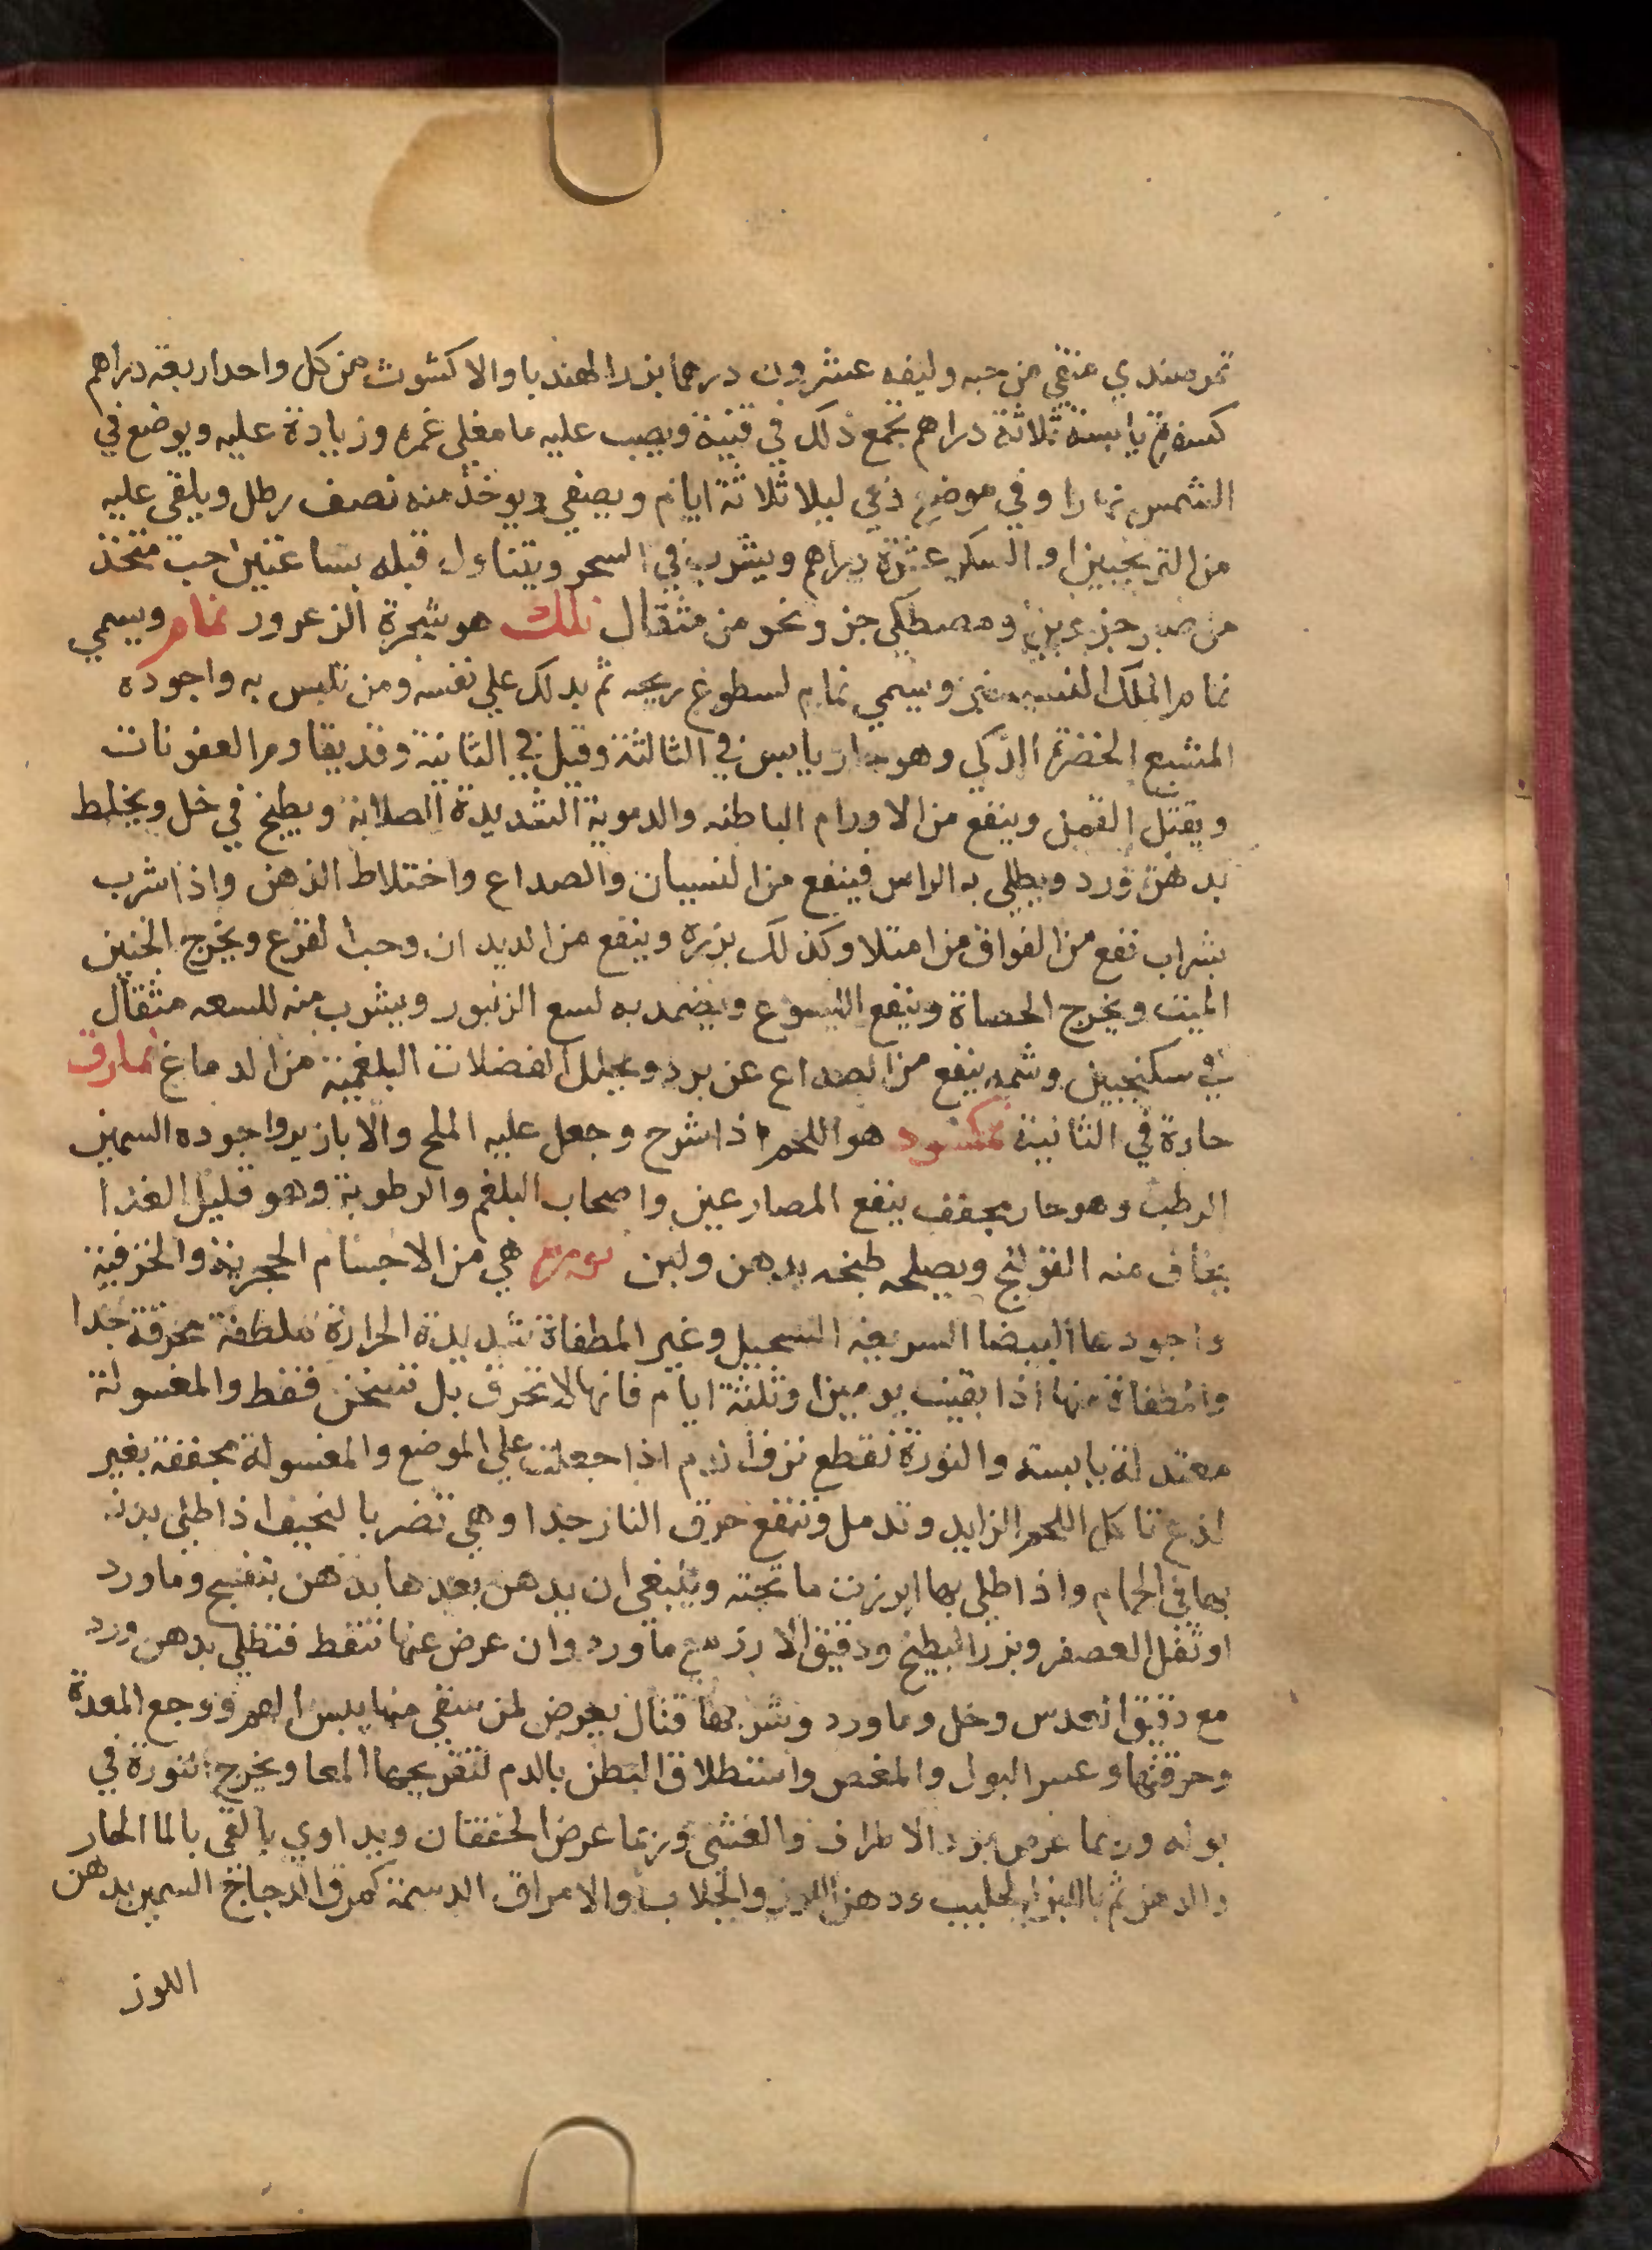 تمر هندي منقي من حبه وليفه عشرون درهما بزر الهندبا والاكشوث من كل واحد اربعة دراهم
كسفرة يابسة ثلاثة دراهم يجمع ذلك في قنينة ويصب عليه ما مغلى غمره وزيادة عليه ويوضع في
الشمس نهارا وفي موضع دفي ليلا ثلاثة ايام ويصفي ويوخذ منه نصف رطل ويلقى عليه
من الترنجبين او السكر عشرة دراهم ويشرب في السحر ويتناول قبله بساعتين حب متخذ
من صبر جزءين ومصطكى جز ونحو من مثقال نلك هو شجرة الزعرور نمام ويسمي
نمام الملك السيسنبر ويسمي نمام لسطوع ريحه ثم بذلك علي نفسه ومن تلبس به واجوده
المشبع الخضرة الذكي وهو حار يابس في الثالثة وقيل في الثانية وقد يقاوم العفونات
ويقتل القمل وينفع من الاورام الباطنه والدموية الشديدة الصلابة ويطبخ في خل ويخلط
بدهن ورد ويطلى به الراس فينفع من النسيان والصداع واختلاط الذهن واذا شرب
بشراب نفع من الفواق من امتلا وكذلك بزره وينفع من الديدان وحب القرع ويخرج الجنين
الميت ويخرج الحصاة وينفع اللسوع ويضمد به لسع الزنبور ويشرب منه للسعه مثقال
في سكنجبين وشمه ينفع من الصداع عن برد ويحلل الفضلات البلغمية من الدماغ نمارق
حارة في الثانية نمكسود هو اللحم اذا شرح وجعل عليه الملح والابازير واجوده السمين
الرطب وهو حار مجفف ينفع المصارعين واصحاب البلغم والرطوبة وهو قليل الغذا
يخاف منه القولنج ويصلحه طبخه بدهن ولبن نورة هي من الاجسام الحجرية والخزفية
واجودها البيضا السريعه السحيل وغير المطفاة شديدة الحرارة ملطفة محرقة جدا
والمطفاة منها اذا بقيت يومين او ثلثة ايام فانها لا تحرق بل تسخن فقط والمغسولة
معتدلة يابسة والنورة تقطع نزف الدم اذا جعلت علي الموضع والمغسولة مجففة بغير
لذع تاكل اللحم الزايد وتدمل وتنفع حرق النار جدا وهي تضر بالنحيف اذا طلى بدنه
بها في الحمام واذا طلي بها ابرزت ما تحته وينبغي ان يدهن بعدها بدهن بنفسج وماورد
او ثفل العصفر وبزر البطيخ ودقيق الارز مع ماورد وان عرض عنها تنقط فتطلي بدهن ورد
مع دقيق العدس وخل وماورد وشربها قتال يعرض لمن سقي منها يبس الفم ووجع المعدة
وحرقتها وعسر البول والمغص واستطلاق البطن بالدم لتقريحها المعا ويخرج النورة في
بوله وربما عرض برد الاطراف والغشى وربما عرض الخفقان ويداوي بالقى بالما الحار
والدهن ثم باللبن الحليب ودهن اللوز والجلاب والامراق الدسمة كمرق الدجاج السمين بدهن
اللوز